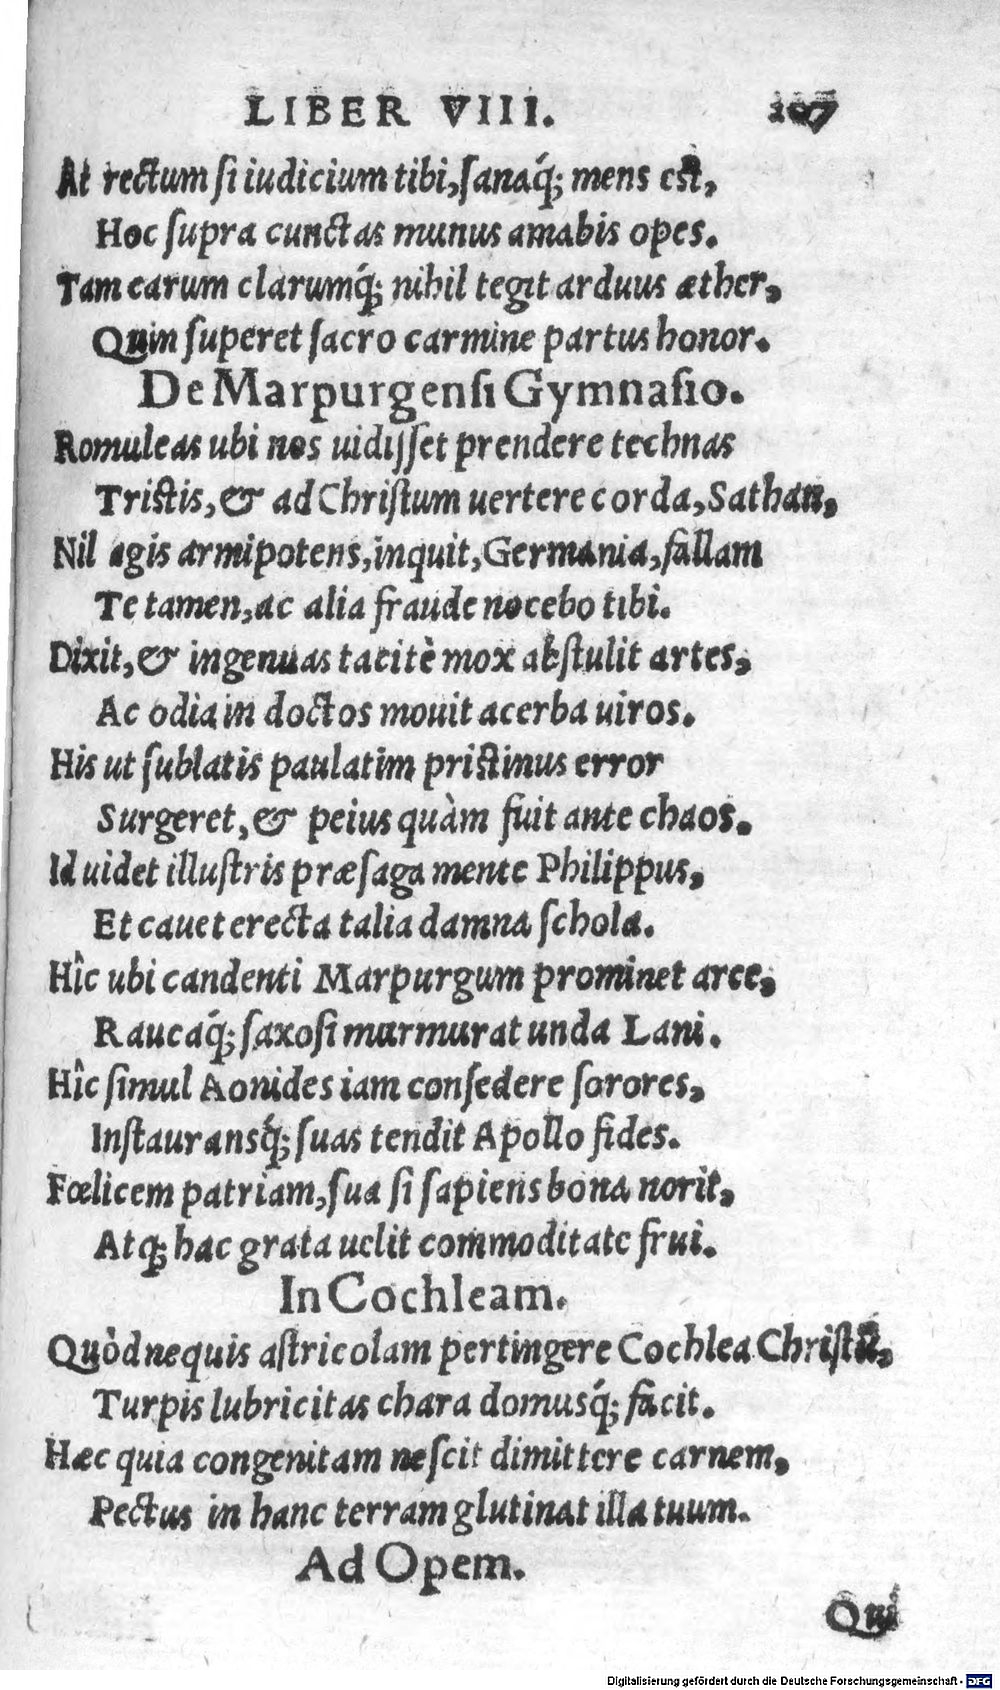 LIBER VIII. 107
At rectum ſi iudicium tibi, ſanaq́; mens est,
Hoc ſupra cunctas munus amabis opes.
Tam earum clarumq́; nihil tegit arduus æther,
Quin ſuperet ſacro carmine partus honor.
De Marpurgenſi Gymnaſio.
Romuleas ubi nos uidiſſet prendere technas
Tristis, & ad Chriſtum uertere corda, Sathan,
Nil agis armipotens, inquit, Germania, fallam
Te tamen, ac alia fraude nocebo tibi.
Dixit, & ingenuas tacitè mox abſtulit artes,
Ac odia in doctos mouit acerba uiros.
His ut ſublatis paulatim pristinus error
Surgeret, & peius quàm fuit ante chaos.
Id uidet illuſtris præſaga mente Philippus,
Et cauet erecta talia damna ſchola.
Hîc ubi candenti Marpurgum prominet arce,
Raucaq́; ſaxoſi murmurat unda Lani.
Hîc ſimul Aonides iam conſedere ſorores,
Inſtauransq́; ſuas tendit Apollo fides.
Fœlicem patriam, ſua ſi ſapiens bona norit,
Atq; hac grata uelit commoditate frui.
In Cochleam.
Quòd nequis aſtricolam pertingere Cochlea Chriſtũ,
Turpis lubricitas chara domusq́; facit.
Hæc quia congenitam neſcit dimittere carnem,
Pectus in hanc terram glutinat illa tuum.
Ad Opem.
Qui
Digitalisierung gefördert durch die Deutsche Forschungsgemeinschaft - DFG